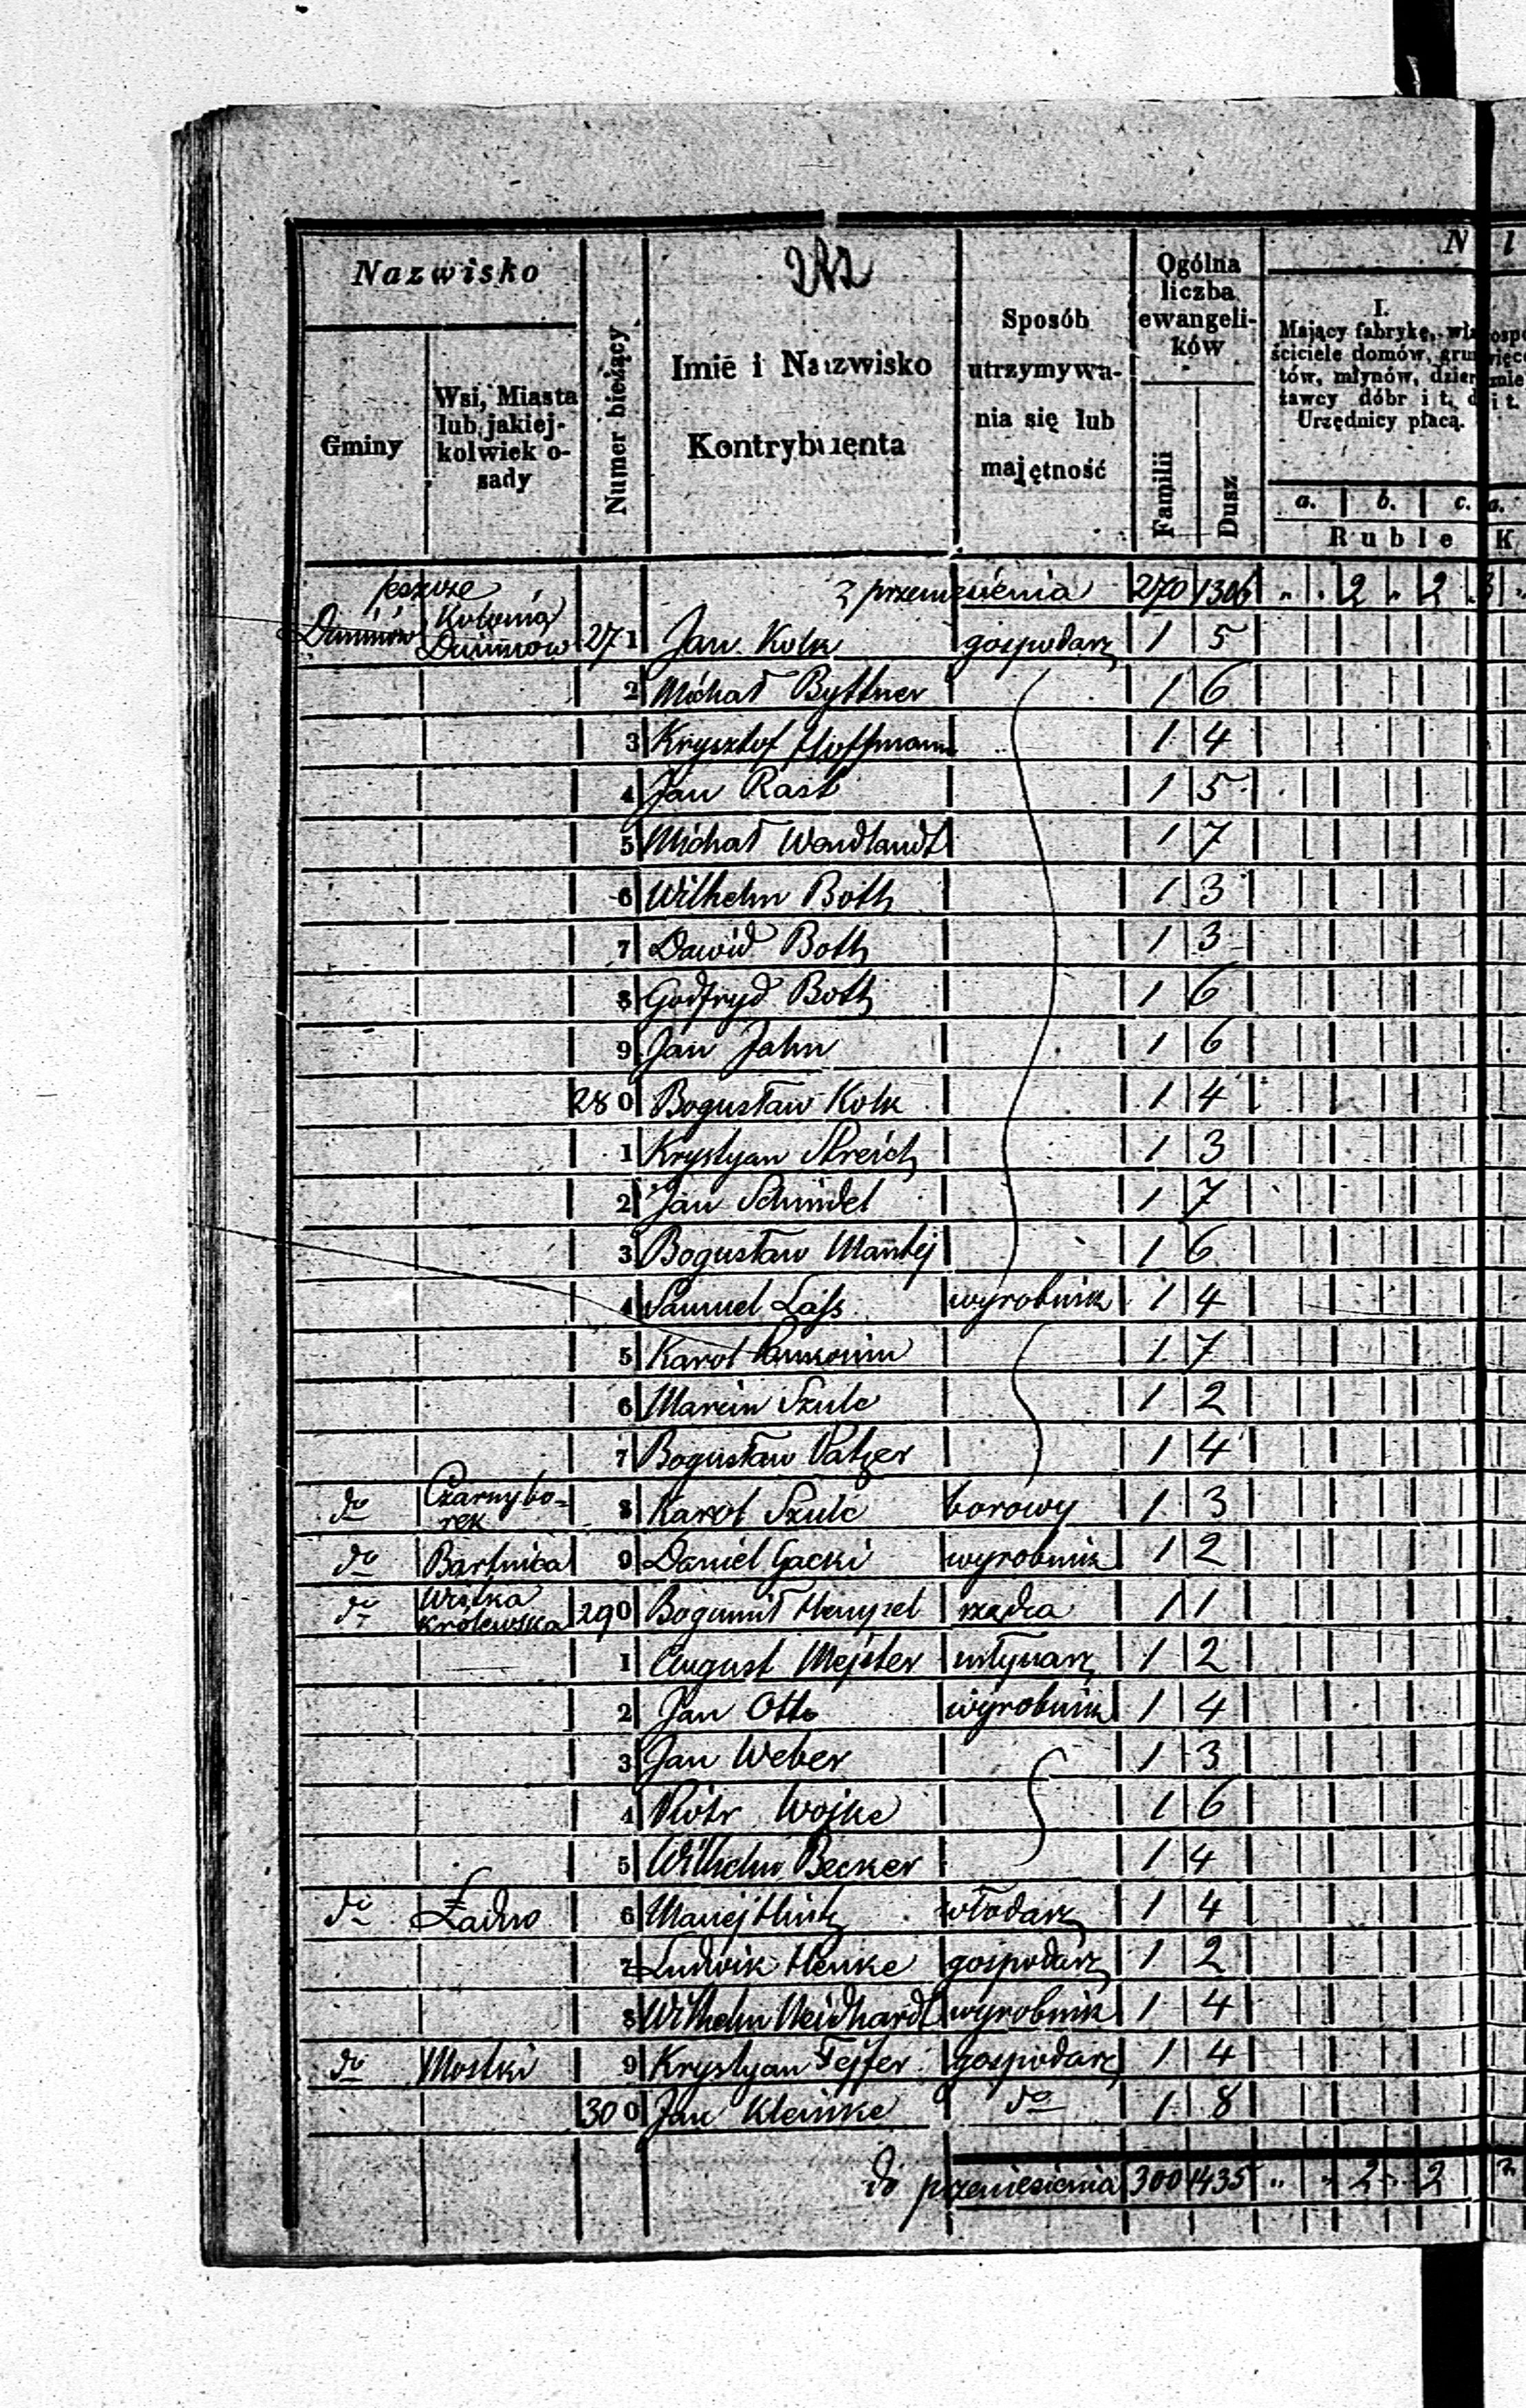 282
Nazwisko
Gminy
Wsi, Miasta lub jakiej- kolwiek o- sady
Numer bieżący
Imie i Nazwisko Kontrybuenta
Sposób utrzymywa- nia się lub majętność
Ogólna liczba ewangeli- ków
Familii
Dusz
N
I.
Mający fabrykę, wła-
ściciele domów, grun-
tów, młynów, dzier-
żawcy dóbr i t. d.
Urzędnicy płacą.
a. b. c. a.
Ruble K
jeszcze z przeniesienia 270 1306 " . 2 " 2 3
Duninów Kolonia Duninow 271 Jan Kolk gospodarz 1 5
2 Michał Byttner 1 6
3 Krysztof Hoffmann 1 4
4 Jan Rast 1 5
5 Michał Wendlandt 1 7
6 Wilhelm Both 1 3
7 Dawid Both 1 3
8 Godfryd Both 1 6
9 Jan Jahn 1 6
280 Bogusław Kolk 1 4
1 Krystyan Streich 1 3
2 Jan Schindel 1 7
3 Bogusław Mantej 1 6
4 Samuel Lass wyrobnik 1 4
5 Karol 1 7
6 Marcin Szulc 1 2
7 Bogusław Patzer 1 4
do Czarnybo- rek 8 Karol Szulc borowy 1 3
do Bartnica 9 Daniel Gacki wyrobnik 1 2
do Wistka Królewska 290 Bogumił Hempel rządca 1 1
1 August Mejster młynarz 1 2
2 Jan Otto wyrobnik 1 4
3 Jan Weber 1 3
4 Piotr Wojke 1 6
5 Wilhelm Becker 1 4
do Ładno 6 Maciej Hintz włodarz 1 4
7 Ludwik Henke gospodarz 1 2
8 Wilhelm Neidhardt wyrobnik 1 4
do Mostki 9 Krystyan Fejfer gospodarz 1 4
300 Jan Kleinke do 1 8
do przeniesienia 300 1435 " " 2 " 2